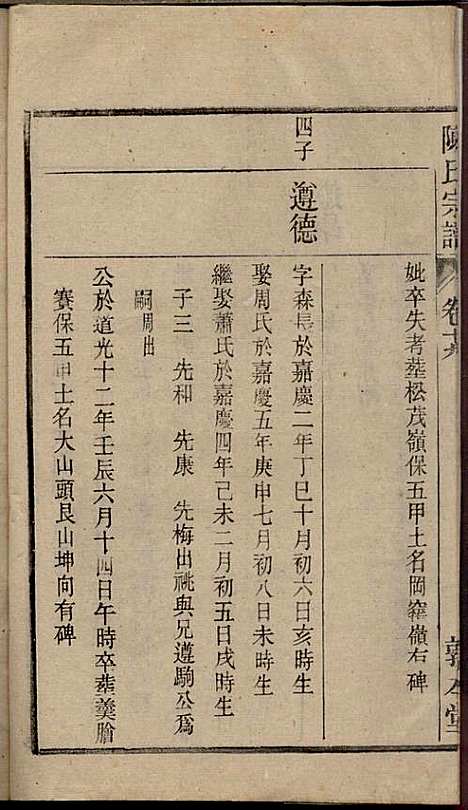 陳氏宗譜
卷十六
敦人堂
妣卒失考塟松茂嶺保五甲土名岡窰嶺右碑
四子
遵德
字森長於嘉慶二年丁巳十月初六日亥時生
娶周氏於嘉慶五年庚申七月初八日未時生
繼娶蕭氏於嘉慶四年己未二月初五日戌時生
子三 先和 先康 先梅出祧與兄遵駒公為
嗣周出
公於道光十二年壬辰六月十四日午時卒塟羹膾
賽保五甲土名大山頭艮山坤向有碑